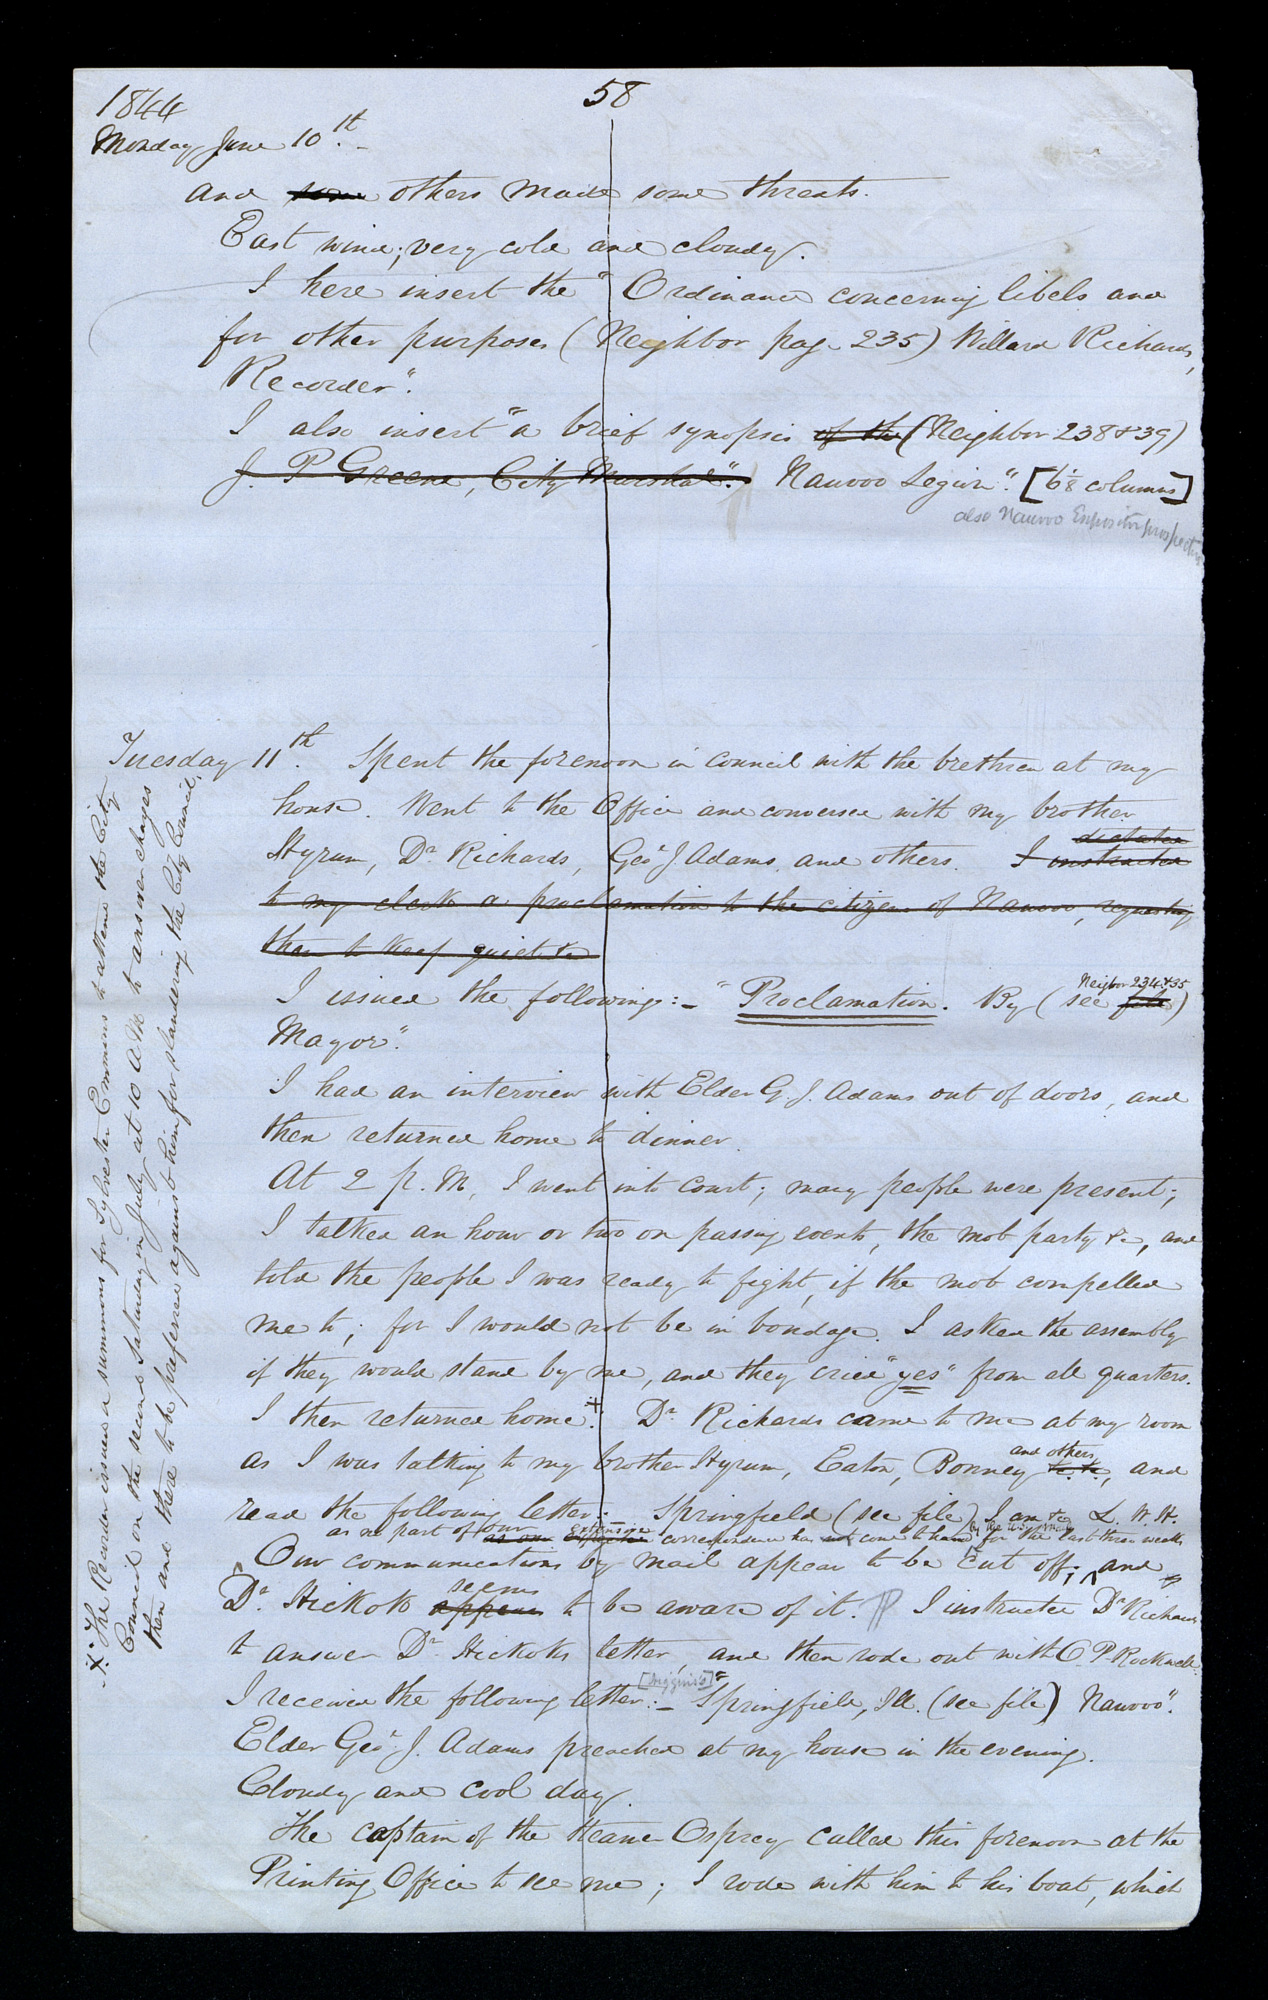 1844
58
Monday June 10th.
and some others made some threats.
East wind; very cold and cloudy.
I here insert the "Ordinance concerning libels and
for other purposes (Neighbor pag. 235) Willard Richards,
Recorder".
I also insert "a brief synopsis of the (Neighbor 238 & 39)
J. P Greene, City Marshal". Nauvoo Legion." [6⅛ columns]
also Nauvoo Expositor prospectus
Tuesday 11th. Spent the forenoon in council with the brethren at my
house. Went to the Office and conversed with my brother
dictated
Hyrum, Dr. Richards, Geo. J. Adams, and others. I instructed
to my clerk a proclamation to the citizens of Nauvoo, requesting
them to keep quiet &c
Neigbor 234 & 35
I issued the following:— "Proclamation. By (see file)
Mayor".
I had an interview with Elder G. J. Adams out of doors, and
then returned home to dinner.
At 2 p. M, I went into court; many people were present;
I talked an hour or two on passing events, the mob party &c, and
told the people I was ready to fight, if the mob compelled
me to; for I would not be in bondage. I asked the assembly
if they would stand by me, and they cried "yes" from all quarters.
I then returned home.+ Dr. Richards came to me at my room
and others
as I was talking to my brother Hyrum, Eaton, Bonney &c. &c., and
read the following letter:— Springfield (see file) I am &c L. W. H.
as no part of our extensive correspondence has not come to hand by the U.S. Mail for the last three weeks
Our communications by mail appear to be cut off; ^ and
seems
Dr. Hickok appears to be aware of it. ¶ I instructed Dr Richards
to answer Dr. Hickoks letter, and then rode out with O. P. Rockwell.
[Wiggins's]
I received the following letter:— "Springfield, Ill. (see file) Nauvoo".
Elder Geo. J. Adams preached at my house in the evening.
Cloudy and cool day.
The captain of the steamer Osprey called this forenoon at the
Printing Office to see me; I rode with him to his boat, which
+. The Recorder issued a summons for Sylvester Emmons to attend the City
Council on the second Saturday in July, at 10 A.M. to answer charges
then and there to be preferred against him for slandering the City Council.